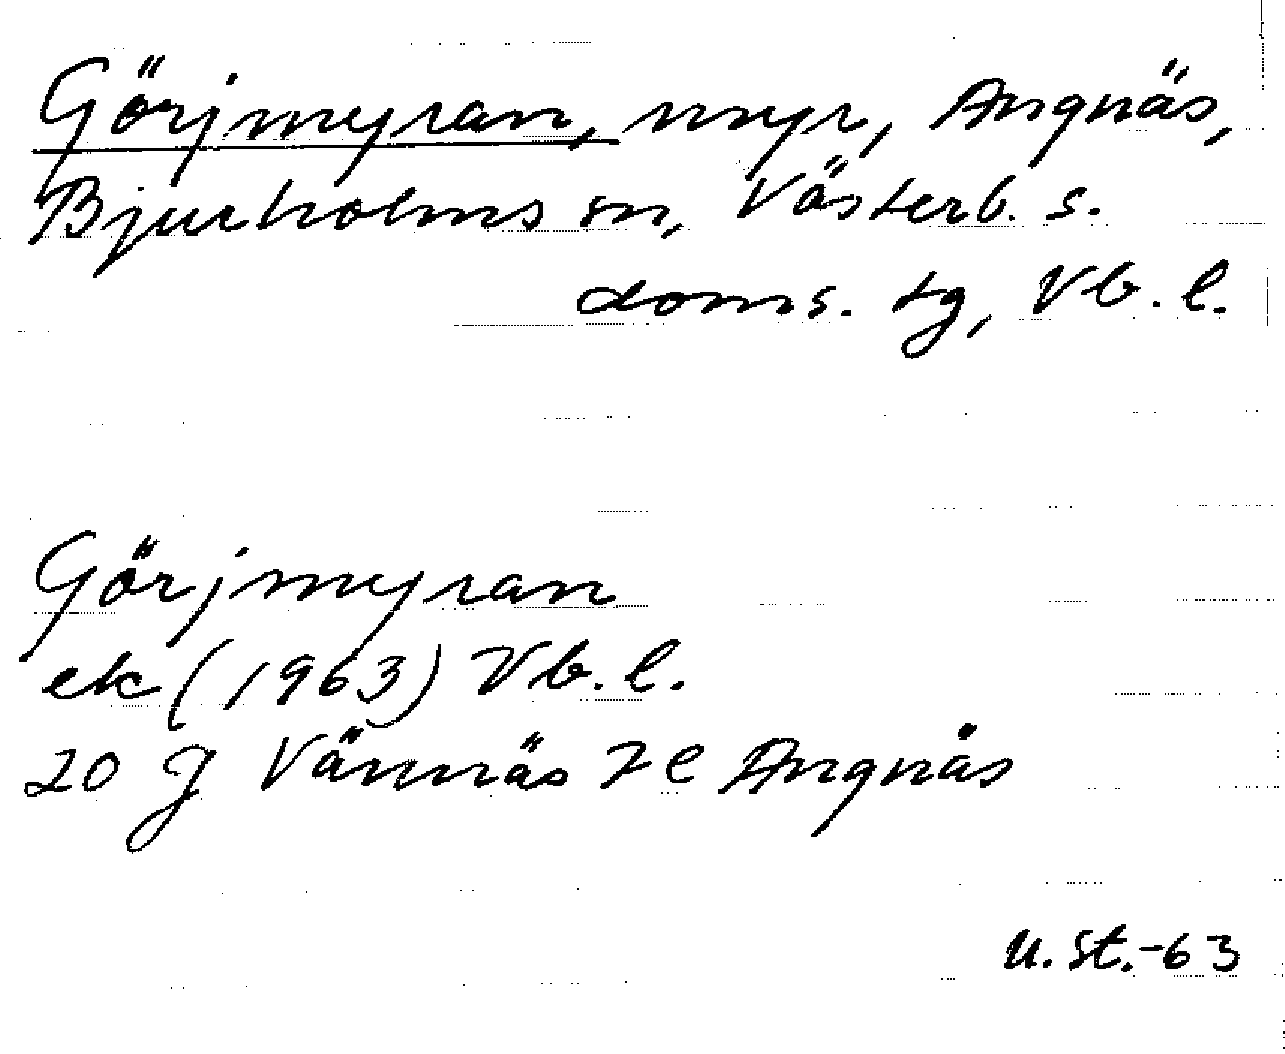 Görjmyran, myr, Angnäs,
Bjurholms sn, Västerb. s.
doms. tg, Vb. l.
Görjmyran
ek (1963) Vb. l.
20 J Vännäs 7e Angnäs
U. St.-63